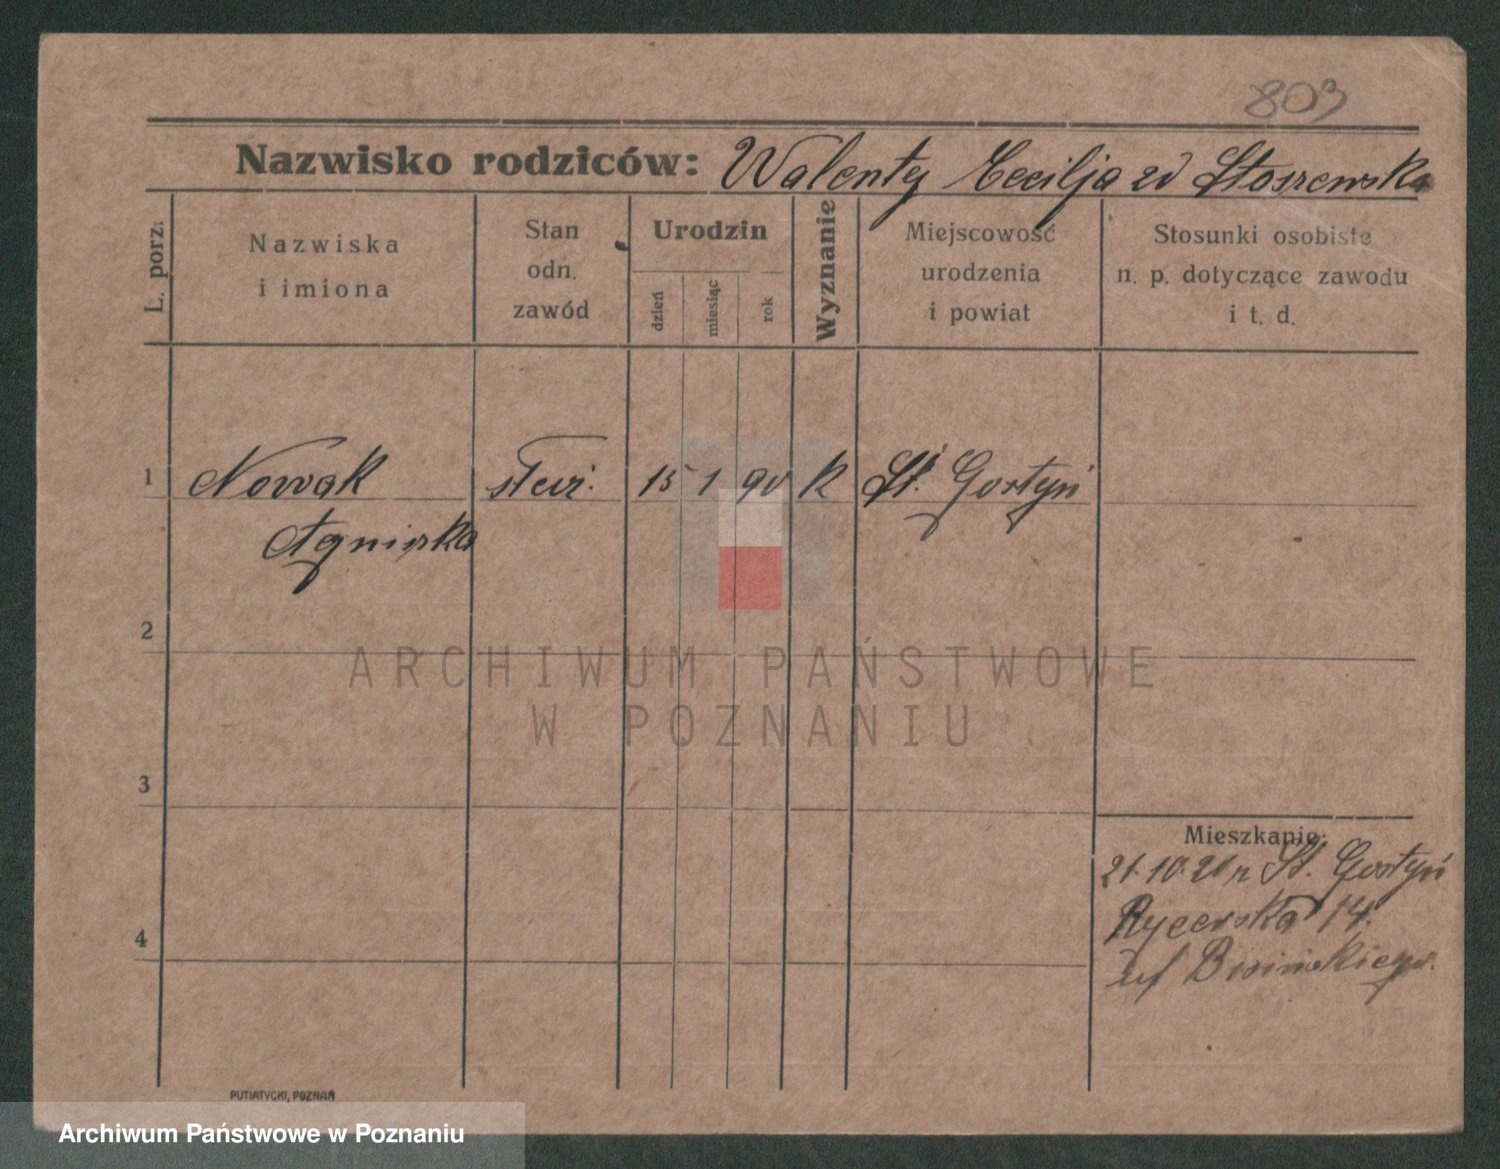 803
Nazwisko rodziców: Walenty Cecilja zd Stoszewska
L. porz.
Nazwiska
i imiona
Stan
odn.
zawód
Urodzin
dzień
miesiąc
rok
Wyznanie
Miejscowość
urodzenia
i powiat
Stosunki osobiste
n. p. dotyczące zawodu
i t. d.
1 Nowak 15 1 90 k St. Gostyń
Agnieszka
2
ARCHIWUM PAŃSTWOWE
W POZNANIU
3
Mieszkanie:
21.10.20 r St. Gostyń
Rycerska 14.
4
PUTIATYCKI, POZNAŃ
Archiwum Państwowe w Poznaniu